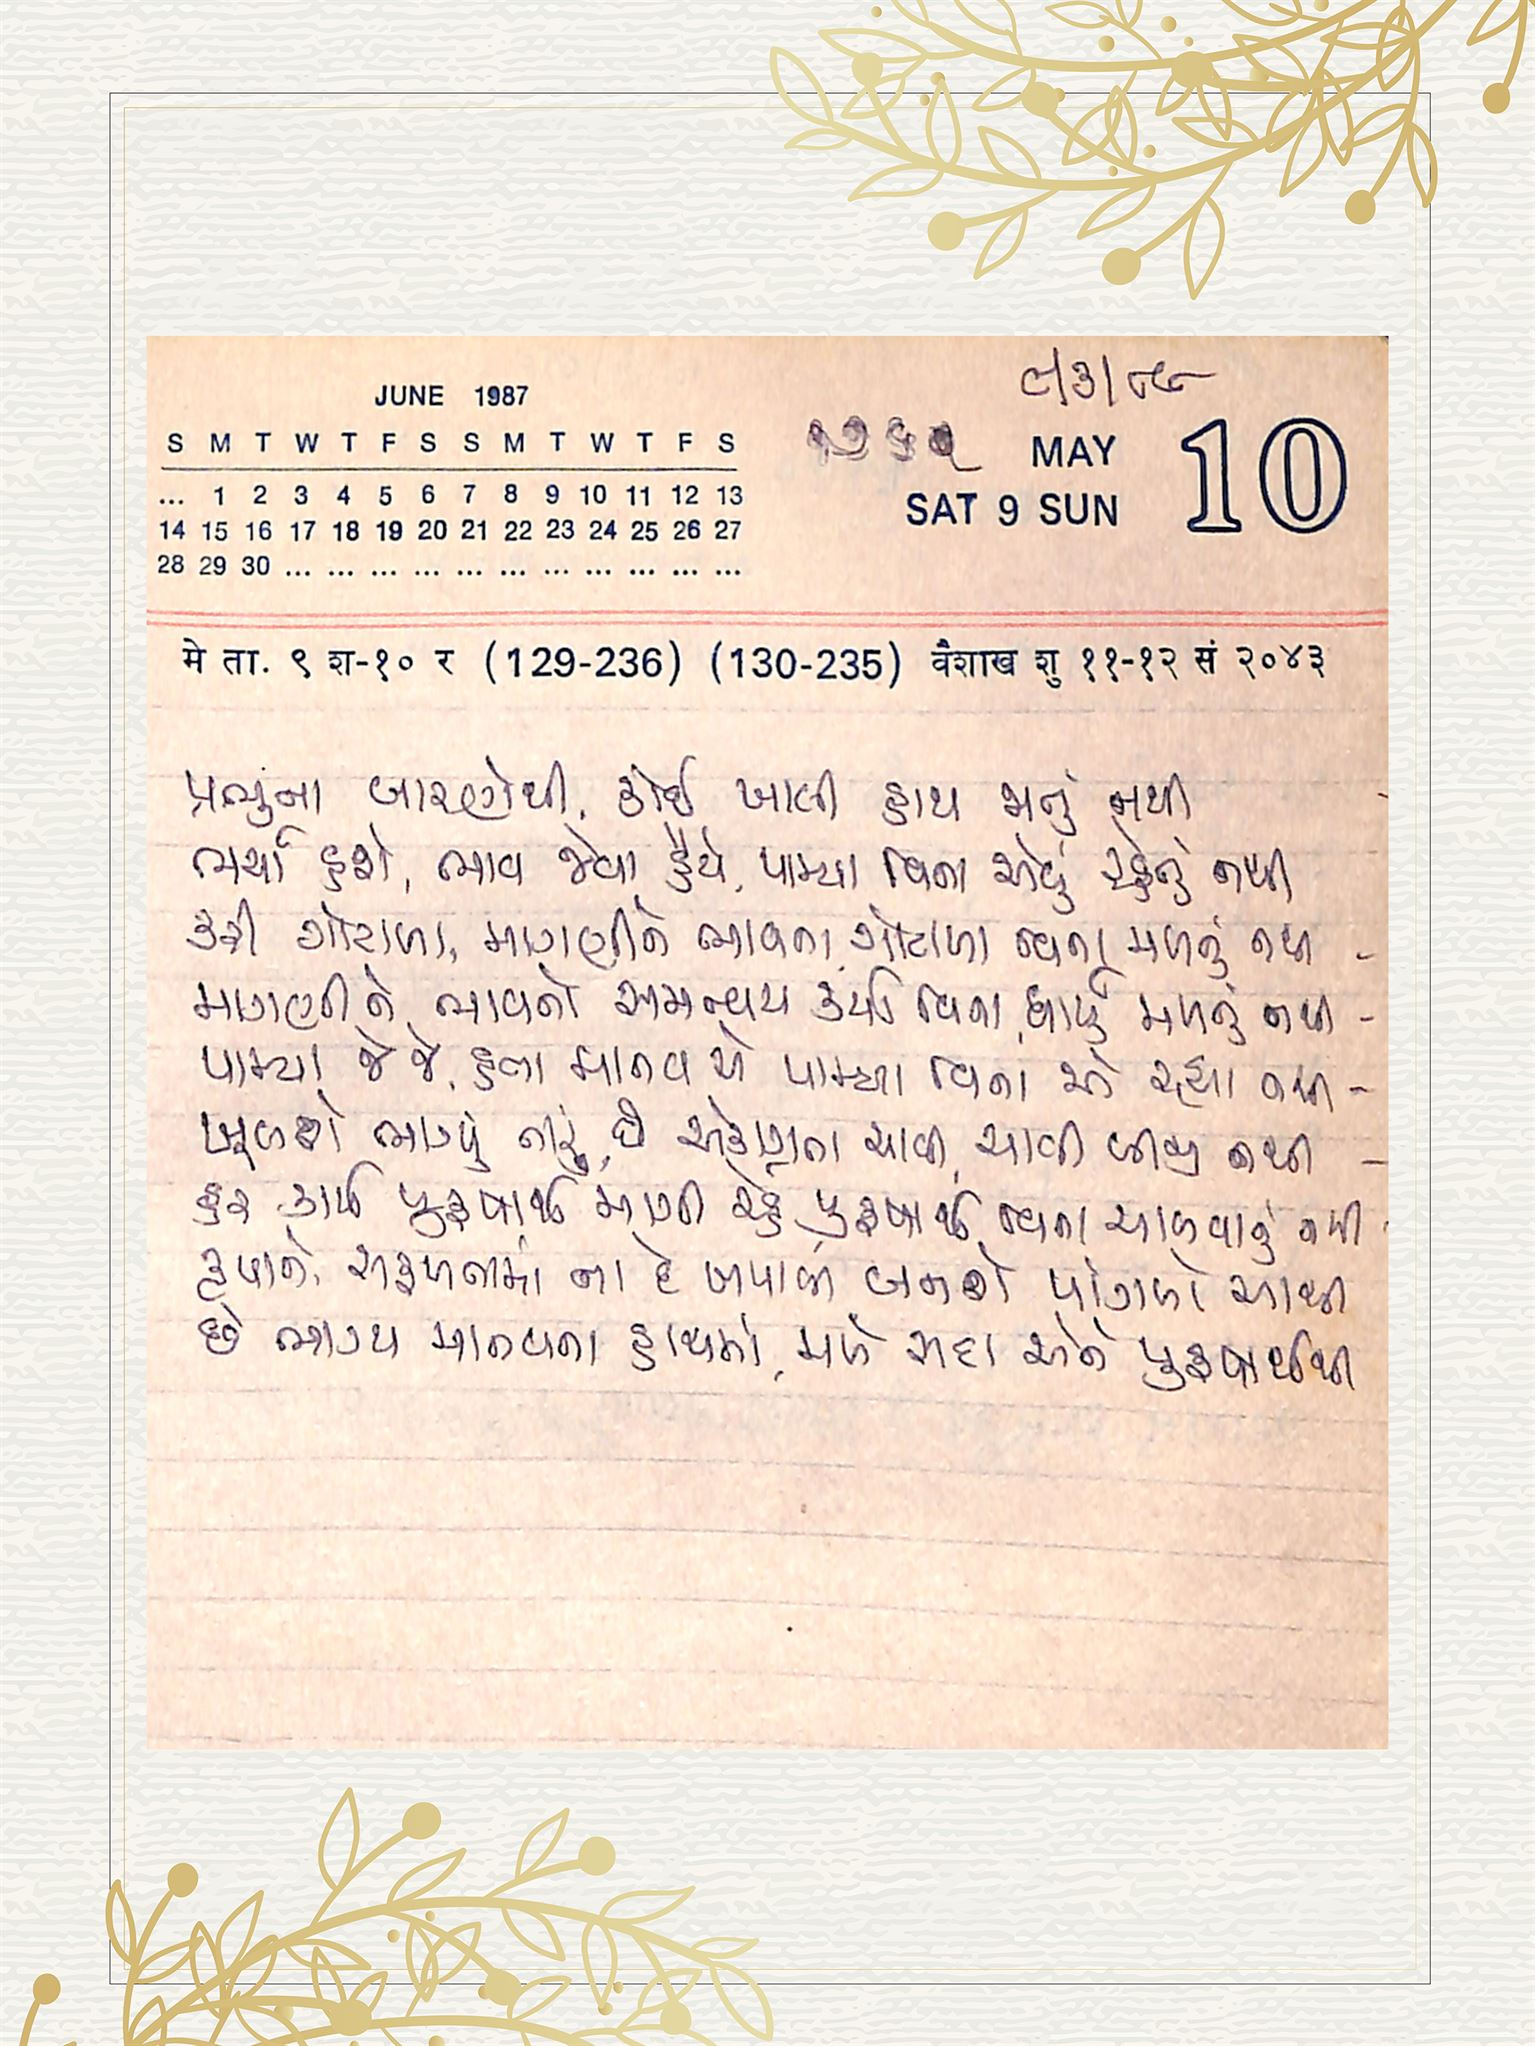 ૯/૩/૮૯
JUNE 1987
S M T W T F S S M T W T F S
... 1 2 3 4 5 6 7 8 9 10 11 12 13
14 15 16 17 18 19 20 21 22 23 24 25 26 27
28 29 30 ... ... ... ... ... ... ... ... ... ... ...
MAY 10
SAT 9 SUN
मे ता. ९ श-१० र (129-236) (130-235) वैशाख शु ११-१२ सं २०४३
પ્રભુના બારણેથી, કોઈ ખાલી હાથ જતું નથી
ભર્યા હશે, ભાવ જેવા હૈયે, પામ્યા વિના એવું રહેતું નથી
કરી ગોટાળા, માગણીને ભાવના, ગોટાળા વિના મળતું નથી -
માગણીને, ભાવનો સમન્વય કર્યા વિના, ધાર્યું મળતું નથી -
પામ્યા જે જે, હતા માનવ એ પામ્યા વિના એ રહ્યા નથી -
ખૂલશે ભાગ્ય તારું, છે એક જ ચાવી, ચાવી બીજી નથી -
હર કાર્ય પુરુષાર્થ માગતી રહે, પુરુષાર્થ વિના ચાલવાનું નથી
કૃપાને, સફળતામાં ના દે ખપાવી બનશે પાંગળો સાથી
છે ભાગ્ય માનવના હાથમાં, મળે સદા એને પુરુષાર્થથી